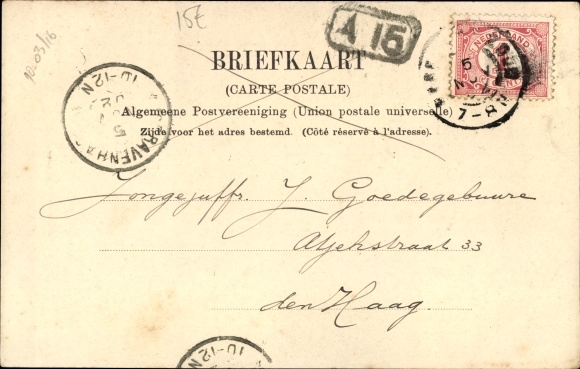 15€
10.03/16
A 15
BRIEFKAART
(CARTE POSTALE)
Algemeene Postvereeniging (Union postale universelle)
Zijde voor het adres bestemd. (Côté réservé à l'adresse).
NEDERLAND
5
NOV
7-8
GRAVENHA
10-12N
5
Jongejuffr. J. Goedegebuure
Atjehstraat 33
den Haag.
10-12N